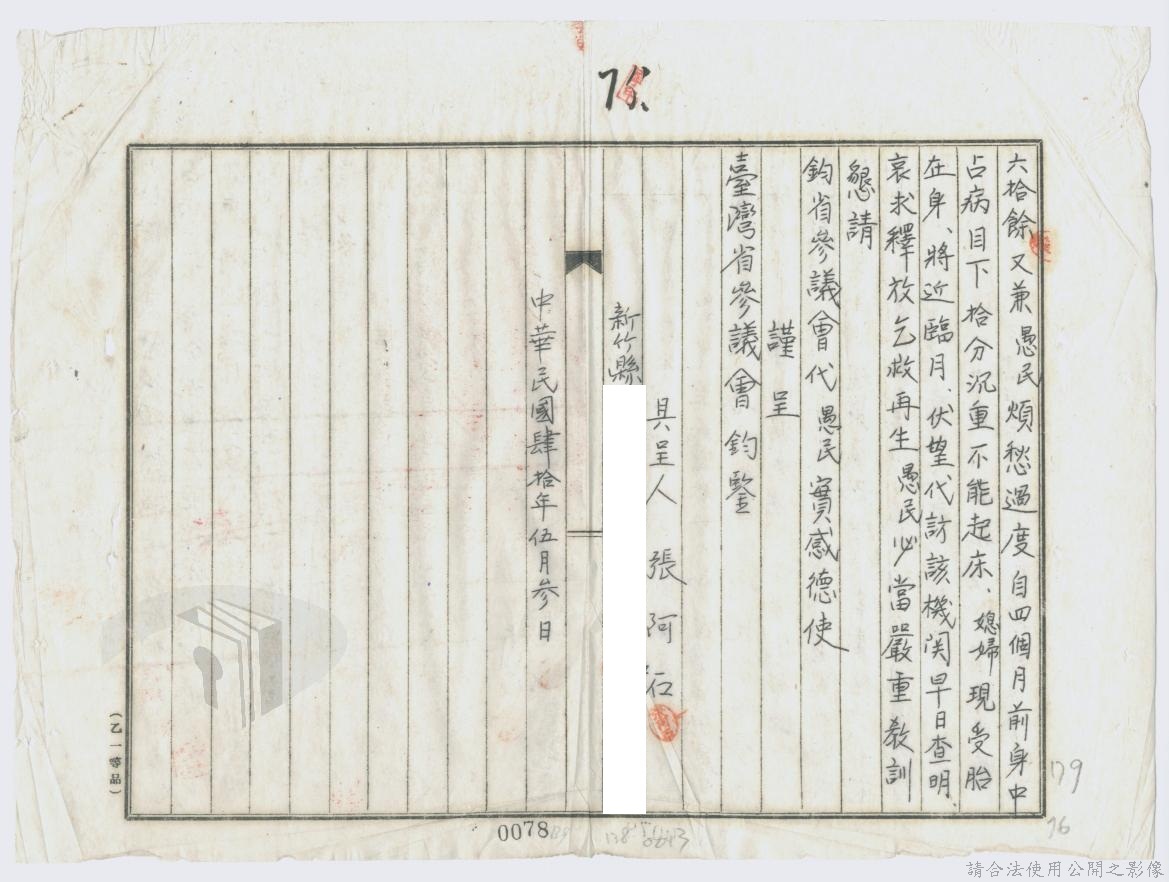 六拾餘又兼愚民煩愁過度自四個月前身中
占病目下拾分沉重不能起床、媳婦現受胎
在身、將近臨月、伏望代訪該機関早日查明、
哀求釋放乞救再生愚民必當嚴重教訓
懇請
鈞省參議會代愚民實感德使
謹呈
臺灣省參議會鈞鑒
具呈人 張阿石
新竹縣
中華民國肆拾年伍月參日
(乙一等品)
0078
179
76
請合法使用公開之影像